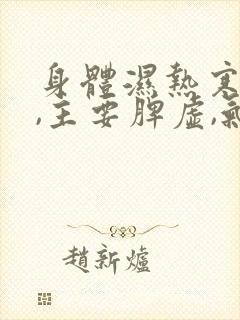 身體濕熱寒
,主要脾虛,氣
趙新爐